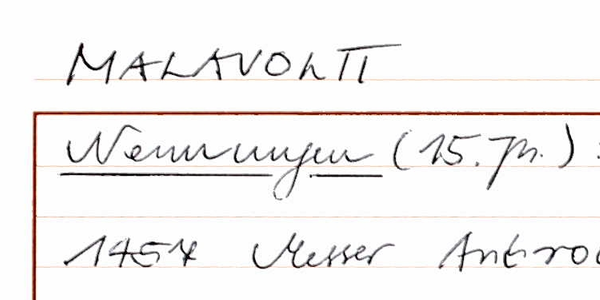 MALAVOLTI
Nennungen (15. Jh.) :
1454 Messer Antro